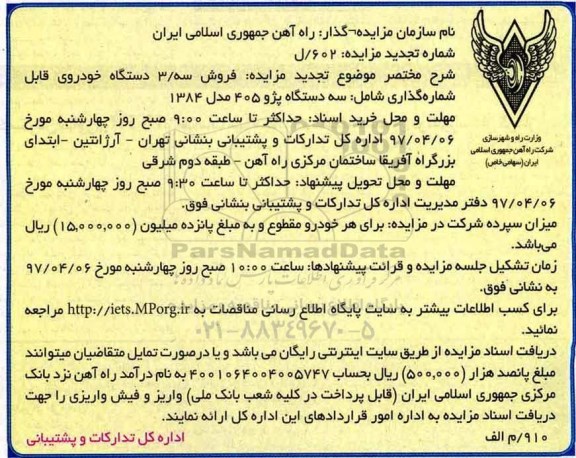 نام سازمان مزایده¬گذار: راه آهن جمهوری اسلامی ایران
شماره تجدید مزایده: ۶۰۲/ل
شرح مختصر موضوع تجدید مزایده: فروش سه/۳ دستگاه خودروی قابل
شماره‌گذاری شامل: سه دستگاه پژو ۴۰۵ مدل ۱۳۸۴
مهلت و محل خرید اسناد: حداکثر تا ساعت ۹:۰۰ صبح روز چهارشنبه مورخ
۹۷/۰۴/۰۶ اداره کل تدارکات و پشتیبانی بنشانی تهران - آرژانتین -ابتدای
بزرگراه آفریقا ساختمان مرکزی راه آهن - طبقه دوم شرقی
مهلت و محل تحویل پیشنهاد: حداکثر تا ساعت ۹:۳۰ صبح روز چهارشنبه مورخ
۹۷/۰۴/۰۶ دفتر مدیریت اداره کل تدارکات و پشتیبانی بنشانی فوق.
وزارت راه و شهرسازی
شرکت راه آهن جمهوری اسلامی
ایران (سهامی خاص)
میزان سپرده شرکت در مزایده: برای هر خودرو مقطوع و به مبلغ پانزده میلیون (۱۵,۰۰۰,۰۰۰) ریال
می‌باشد.
زمان تشکیل جلسه مزایده و قرائت پیشنهادها: ساعت ۱۰:۰۰ صبح روز چهارشنبه مورخ ۹۷/۰۴/۰۶
به نشانی فوق.
برای کسب اطلاعات بیشتر به سایت پایگاه اطلاع رسانی مناقصات به http://iets.MPorg.ir مراجعه
نمائید.
دریافت اسناد مزایده از طریق سایت اینترنتی رایگان می باشد و یا درصورت تمایل متقاضیان میتوانند
مبلغ پانصد هزار (۵۰۰,۰۰۰) ریال بحساب ۴۰۰۱۰۶۴۰۰۴۰۰۵۷۴۷ به نام درآمد راه آهن نزد بانک
مرکزی جمهوری اسلامی ایران (قابل پرداخت در کلیه شعب بانک ملی) واریز و فیش واریزی را جهت
دریافت اسناد مزایده به اداره امور قراردادهای این اداره کل ارائه نمایند.
۹۱۰/م الف
اداره کل تدارکات و پشتیبانی
ParsNamadData
۰۲۱-۸۸۳۴۹۶۷۰-۵